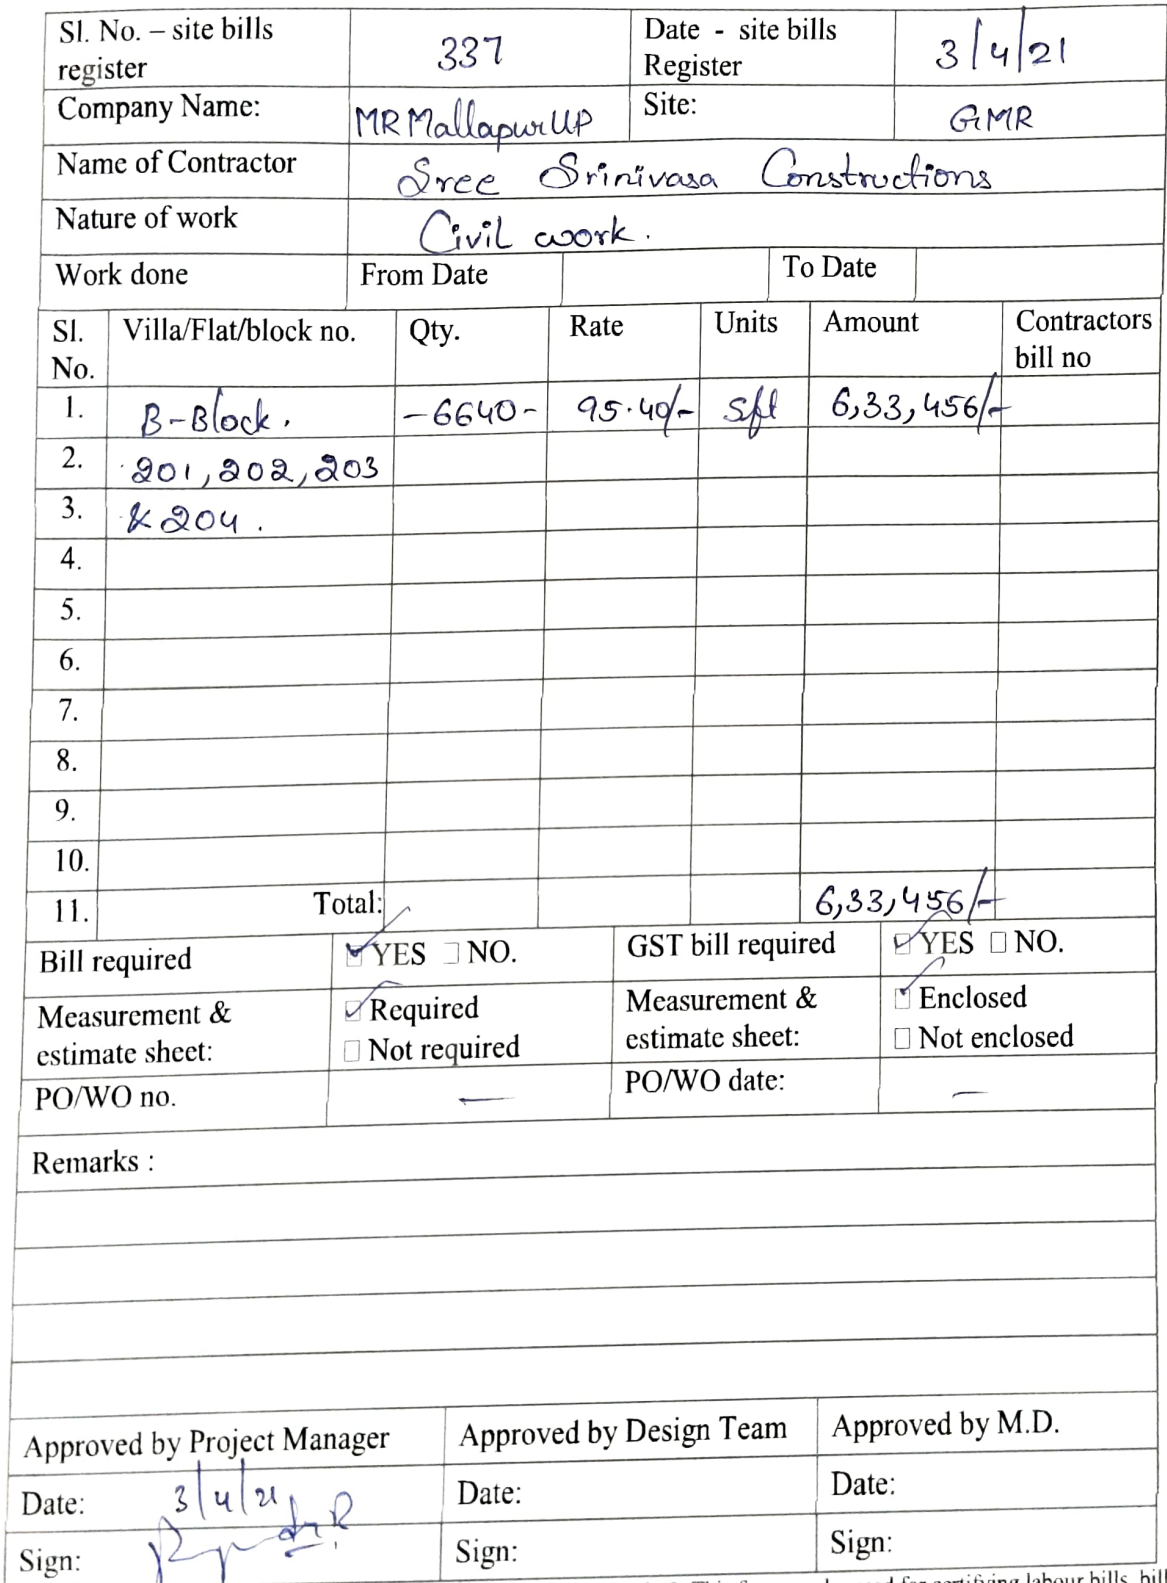 Sl. No. – site bills register 337 Date - site bills Register 3/4/21
Company Name: MR Mallapur UP Site: GMR
Name of Contractor Sree Srinivasa Constructions
Nature of work Civil work.
Work done From Date To Date
Sl. No. Villa/Flat/block no. Qty. Rate Units Amount Contractors bill no
1. B-Block. -6640- 95.40/- Sft 6,33,456/-
2. 201, 202, 203
3. & 204.
4.
5.
6.
7.
8.
9.
10.
11. Total: 6,33,456/-
Bill required YES NO. GST bill required YES NO.
Measurement & estimate sheet: Required Not required Measurement & estimate sheet: Enclosed Not enclosed
PO/WO no. — PO/WO date: —
Remarks :
Approved by Project Manager Approved by Design Team Approved by M.D.
Date: 3/4/21 Date: Date:
Sign: Sign: Sign: